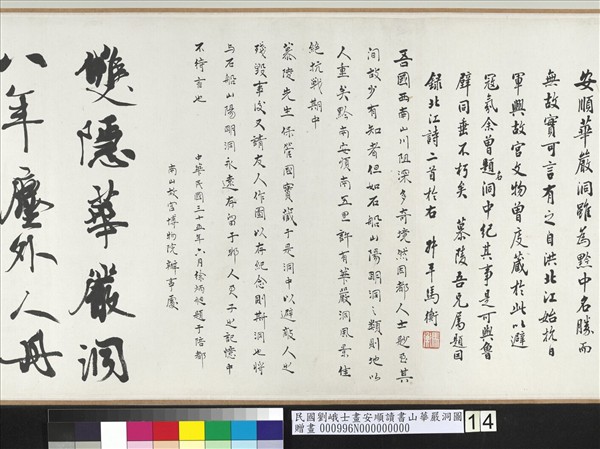 安順華嚴洞雖為黔中名勝而
無故實可言有之自洪北江始抗日
軍興故宮文物曾庋藏於此以避
寇氛余曾題名洞中紀其事是可與魯
壁同垂不朽矣 慕陵吾兄屬題因
錄北江詩二首於右 叔平馬衡
吾國西南山川阻深多奇境然因都人士趾
間故少有知者但如石船山陽明洞之類則地以
人重矣黔南安順南五里許有華嚴洞風景佳
絕抗戰期中
慕陵先生保管國寶藏于是洞中以避敵人之
殘毀事後又請友人作圖以存紀念則斯洞也將
與石船山陽明洞永遠存留于邦人士之記憶中
不待言也
中華民國三十五年八月徐炳昶題于陪都
南山故宮博物院辦事處
雙隱華嚴洞
八年塵外人毋
民國劉峨士畫安順讀書山華嚴洞圖
贈畫 000996N000000000
14